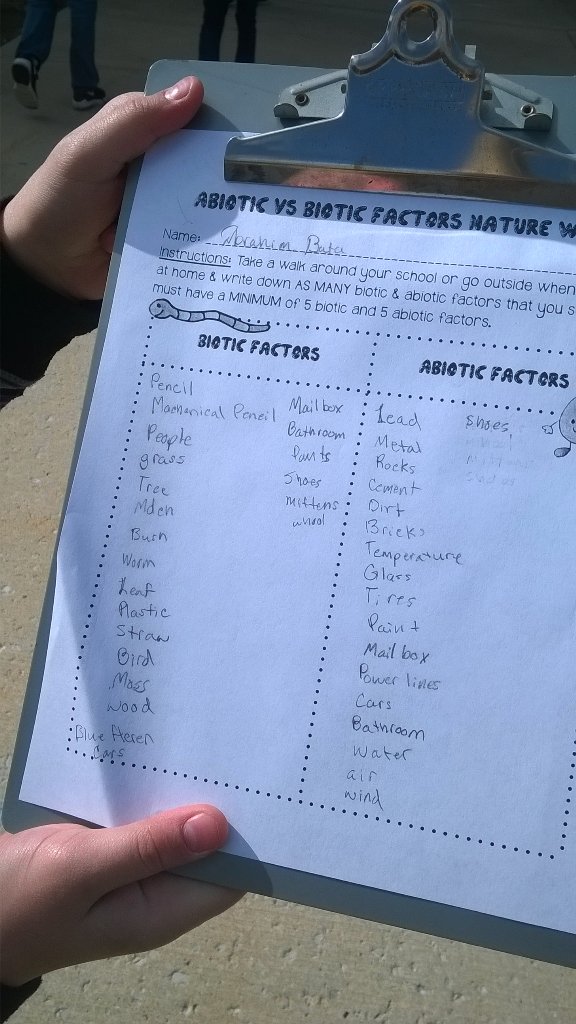 ABIOTIC VS BIOTIC FACTORS NATURE W
Name: Ibrahim
Instructions: Take a walk around your school or go outside when
at home & write down AS MANY biotic & abiotic factors that you s
must have a MINIMUM of 5 biotic and 5 abiotic factors.
BIOTIC FACTORS
Pencil
Machanical Pencil
People
grass
Tree
Bush
Worm
Leaf
Plastic
Straw
Bird
Moss
wood
Blue Heren
Cars
Mailbox
Bathroom
Pants
Shoes
mittens
ABIOTIC FACTORS
Lead
Metal
Rocks
Cement
Dirt
Bricks
Temperature
Glass
Tires
Paint
Mail box
Power lines
Cars
Bathroom
Water
air
wind
Shoes